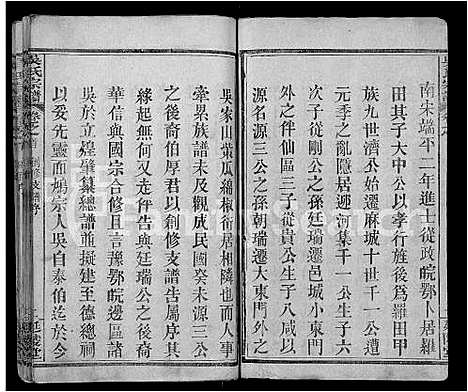 南宋端平二年進士從政皖鄂卜居羅
田其子大中公以孝行旌後爲羅田甲
族九世濟公遷麻城十世貴一公肇修
元季之亂隱居遜河集千一公生子六
次子從剛公之孫廷瑞遷邑城小東門
之外一徙仙區三子從貴公生子八咸以
源名源三公之孫朝瑞遷大東門外之
吳家山萊瓜綿椒衍居相隣也而人事
牽累族譜未及觀成民國癸未源三公
之後裔伯厚君以創修支譜告屬序其
緣起無何又選伻告與國信與
華信與國宗合修且言豫鄂皖邊區諸
吳於立煌肇纂總譜並擬建至德總祠
以妥先靈而煥宗人吳自泰伯迄於今
吳氏宗譜 卷之首 創修支譜序
延陵堂
FamilySearch